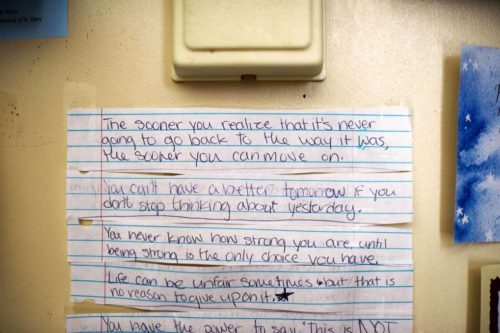 St. Mary
Cathedral of St. Mary
The sooner you realize that it's never
going to go back to the way it was,
the sooner you can move on.
You can't have a better tomorrow if you
don't stop thinking about yesterday.
You never know how strong you are, until
being strong is the only choice you have.
Life can be unfair sometimes but that is
no reason to give up on it.
You have the power to say "This is NOT